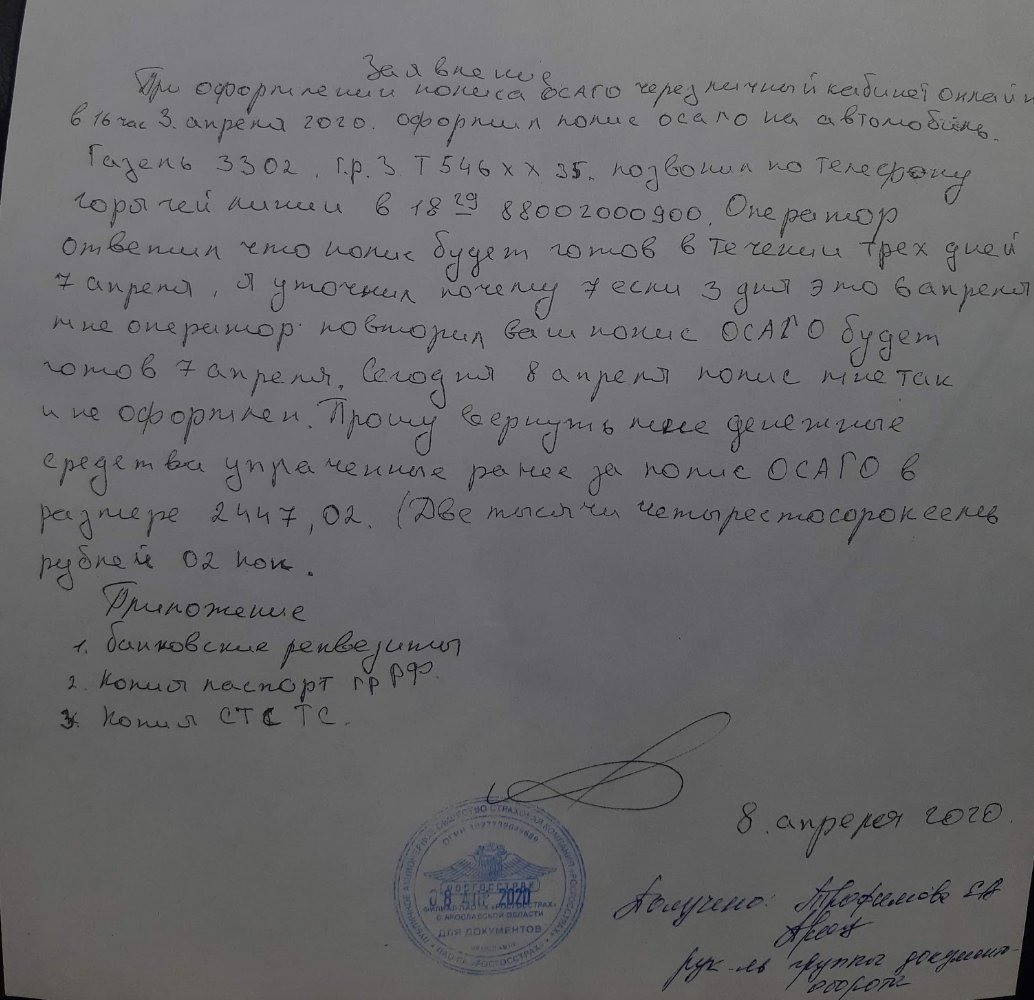 Заявление
При оформлении полиса ОСАГО через личный кабинет онлайн
в 16 час 3. апреля 2020. оформил полис осаго на автомобиль.
Газель 3302. г.р.З Т546хх35. позвонил по телефону
горячей линии в 18 29 88002000900. Оператор
ответил что полис будет готов в течении трех дней
7 апреля, я уточнил почему 7 если 3 дня это 6 апреля
мне оператор повторил ваш полис ОСАГО будет
готов 7 апреля. Сегодня 8 апреля полис мне так
и не оформлен. Прошу вернуть мне денежные
средства уплаченные ранее за полис ОСАГО в
размере 2447,02. (Две тысячи четырестосороксемь
рублей 02 коп.
Приложение
1. банковские реквезиты
2. Копия паспорт гр РФ.
3. Копия СТС ТС.
8. апреля 2020.
ПУБЛИЧНОЕ АКЦИОНЕРНОЕ ОБЩЕСТВО СТРАХОВАЯ КОМПАНИЯ «РОСГОССТРАХ»
РОСГОССТРАХ
08 АПР 2020
ФИЛИАЛ ПАО СК «РОСГОССТРАХ»
В ЯРОСЛАВСКОЙ ОБЛАСТИ
ДЛЯ ДОКУМЕНТОВ
ПАО СК «РОСГОССТРАХ»
Получено: Трофимова
рук-ль группы документо-
оборота